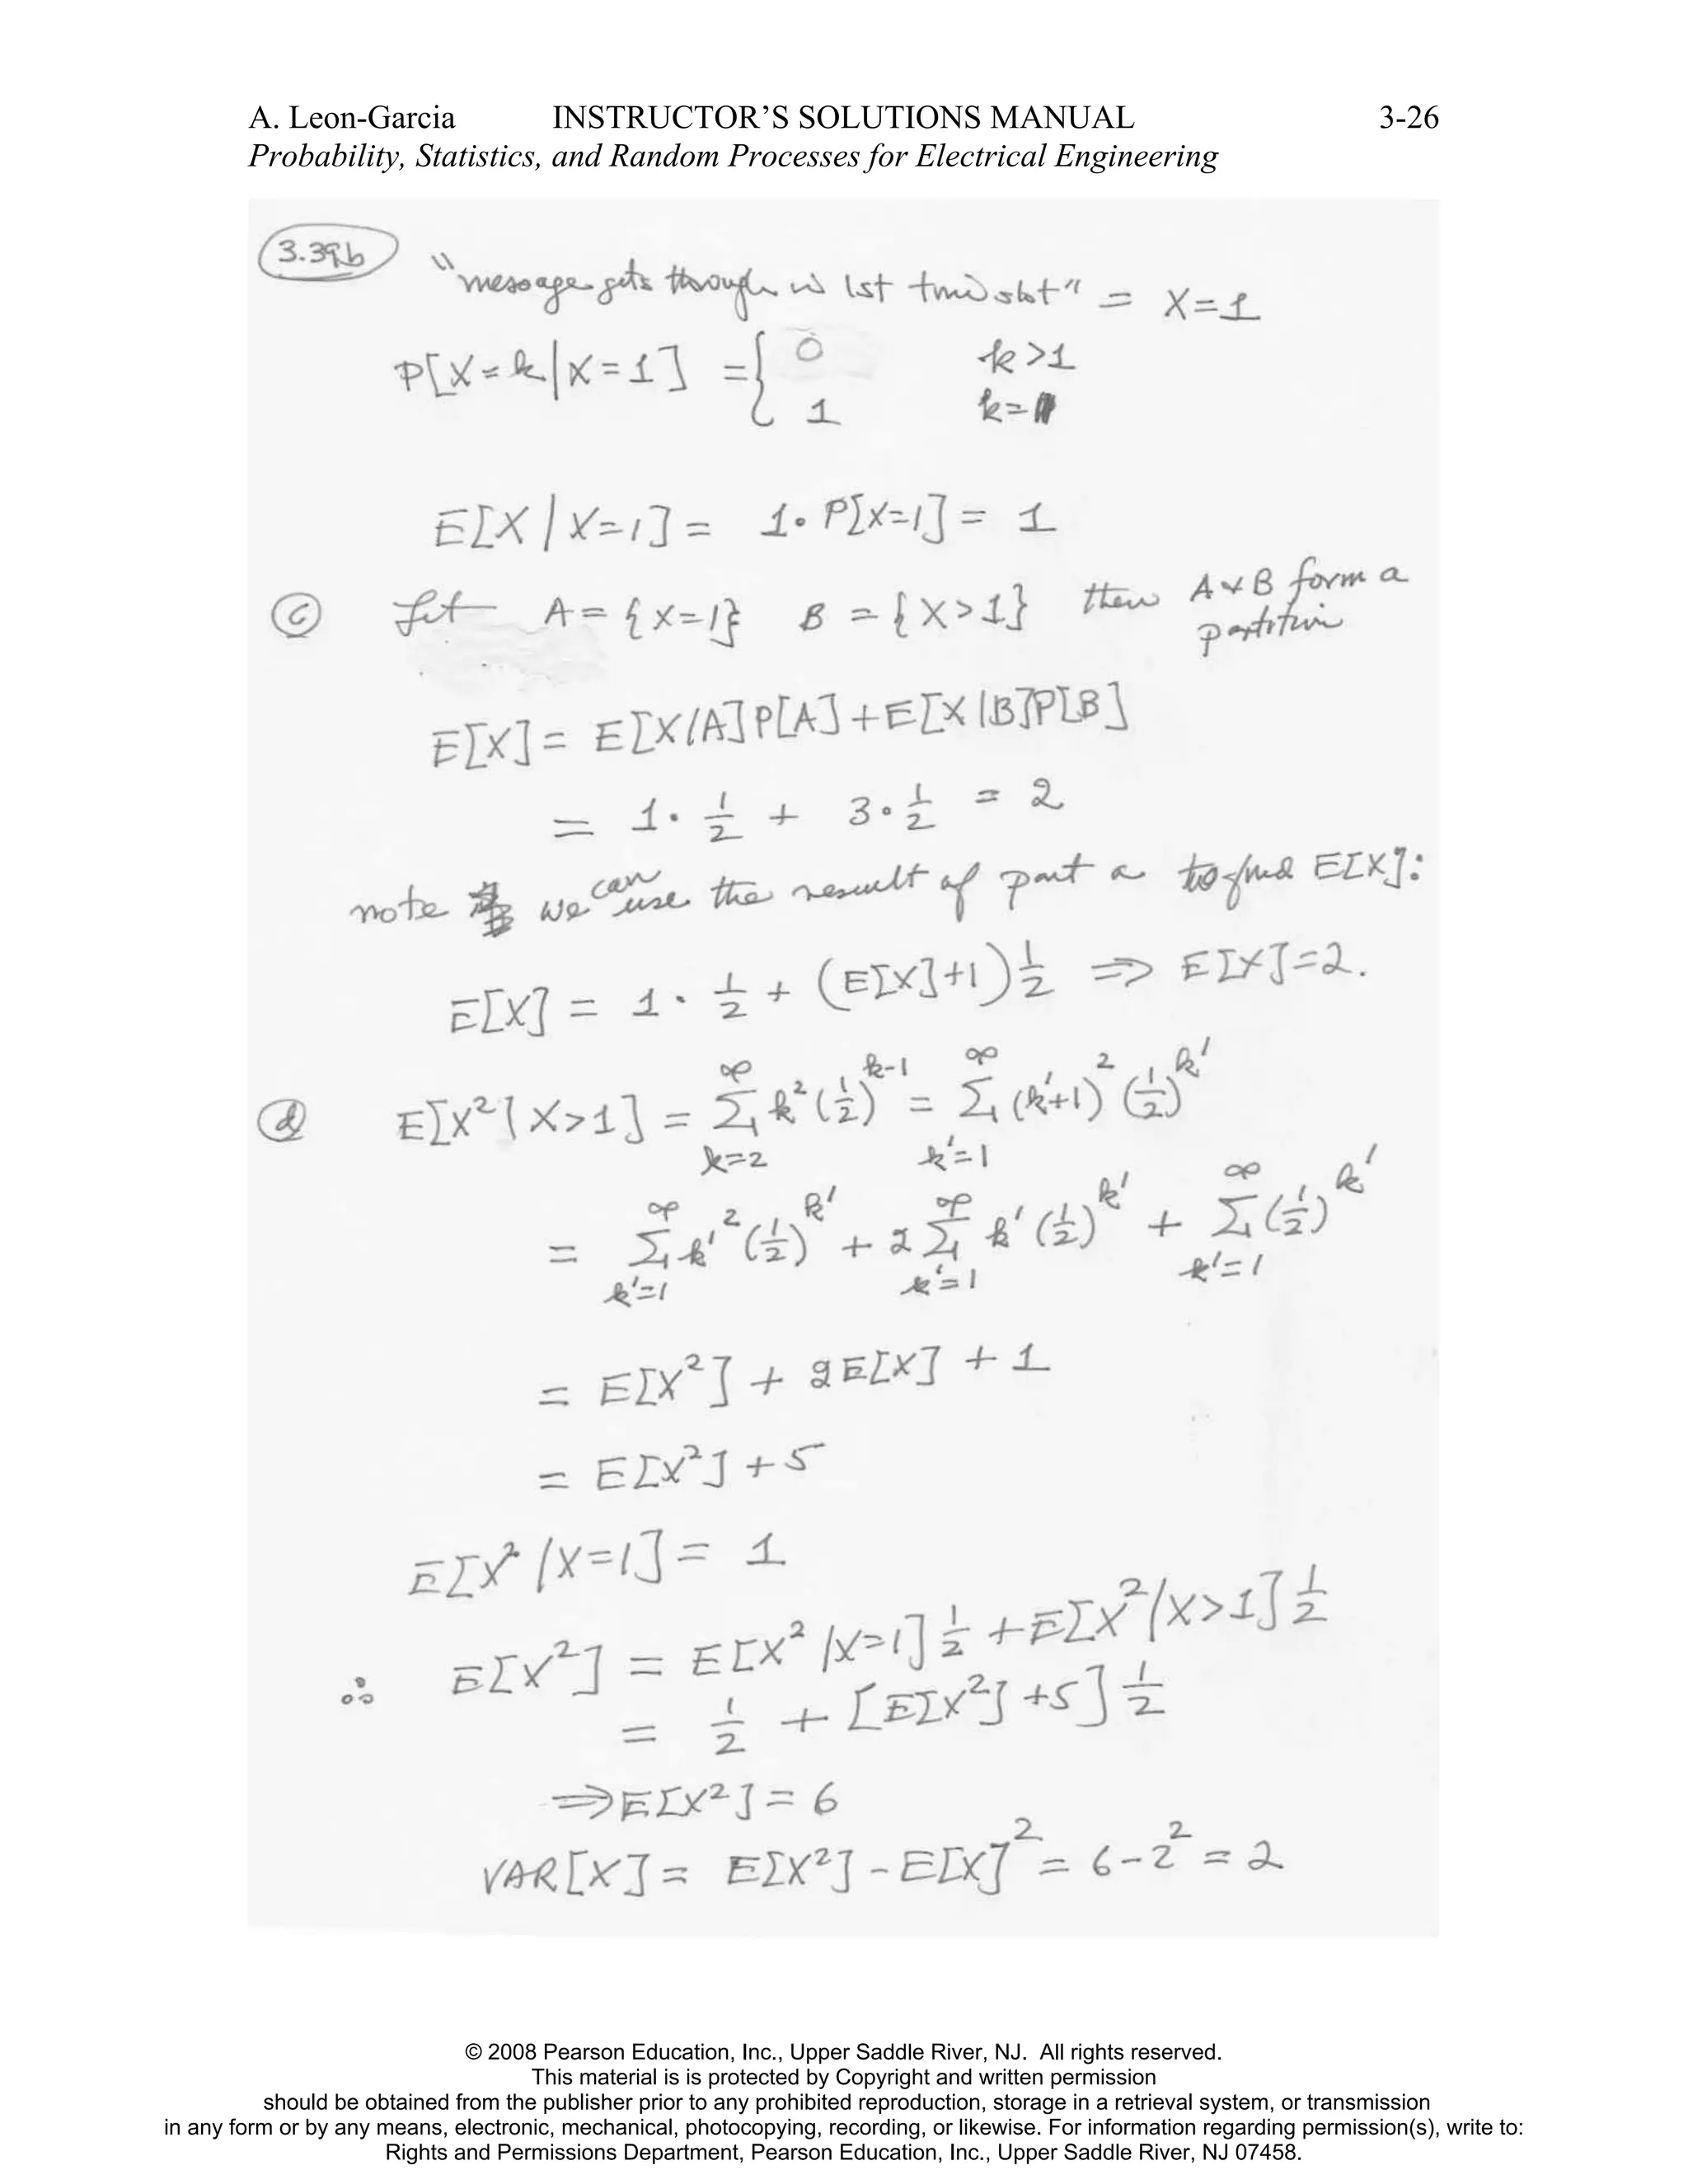 A. Leon-Garcia INSTRUCTOR’S SOLUTIONS MANUAL 3-26
Probability, Statistics, and Random Processes for Electrical Engineering
3.39b "message gets through in 1st time slot" = X=1
P[X=k|X=1] = { 0 k>1
1 k=1
E[X|X=1] = 1·P[X=1] = 1
(c) Let A={X=1} B={X>1} then A & B form a
partition
E[X] = E[X|A]P[A]+E[X|B]P[B]
= 1·1/2 + 3·1/2 = 2
note we can use the result of part a to find E[X]:
E[X] = 1·1/2 + (E[X]+1)1/2 ⇒ E[X]=2.
(d) E[X²|X>1] = ∑_{k=2}^{∞} k²(1/2)^{k-1} = ∑_{k'=1}^{∞} (k'+1)²(1/2)^{k'}
= ∑_{k'=1}^{∞} k'²(1/2)^{k'} + 2∑_{k'=1}^{∞} k'(1/2)^{k'} + ∑_{k'=1}^{∞} (1/2)^{k'}
= E[X²] + 2E[X] + 1
= E[X²] + 5
E[X²|X=1] = 1
∴ E[X²] = E[X²|X=1]1/2 + E[X²|X>1]1/2
= 1/2 + [E[X²]+5]1/2
⇒ E[X²] = 6
VAR[X] = E[X²] - E[X]² = 6-2² = 2
© 2008 Pearson Education, Inc., Upper Saddle River, NJ. All rights reserved.
This material is is protected by Copyright and written permission
should be obtained from the publisher prior to any prohibited reproduction, storage in a retrieval system, or transmission
in any form or by any means, electronic, mechanical, photocopying, recording, or likewise. For information regarding permission(s), write to:
Rights and Permissions Department, Pearson Education, Inc., Upper Saddle River, NJ 07458.